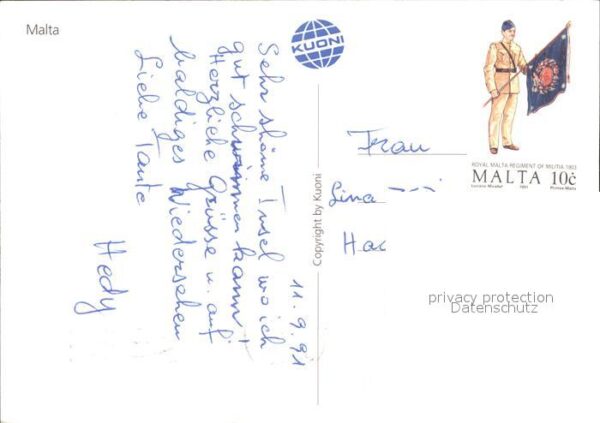 Malta
KUONI
11.9.91
Sehr schöne Insel wo ich
gut schwimmen kann!
Herzliche Grüsse u. auf
baldiges Wiedersehen
Liebe Tante
Hedy
Copyright by Kuoni
Frau
Lina
ROYAL MALTA REGIMENT OF MILITIA 1903
MALTA 10c
1991
privacy protection
Datenschutz